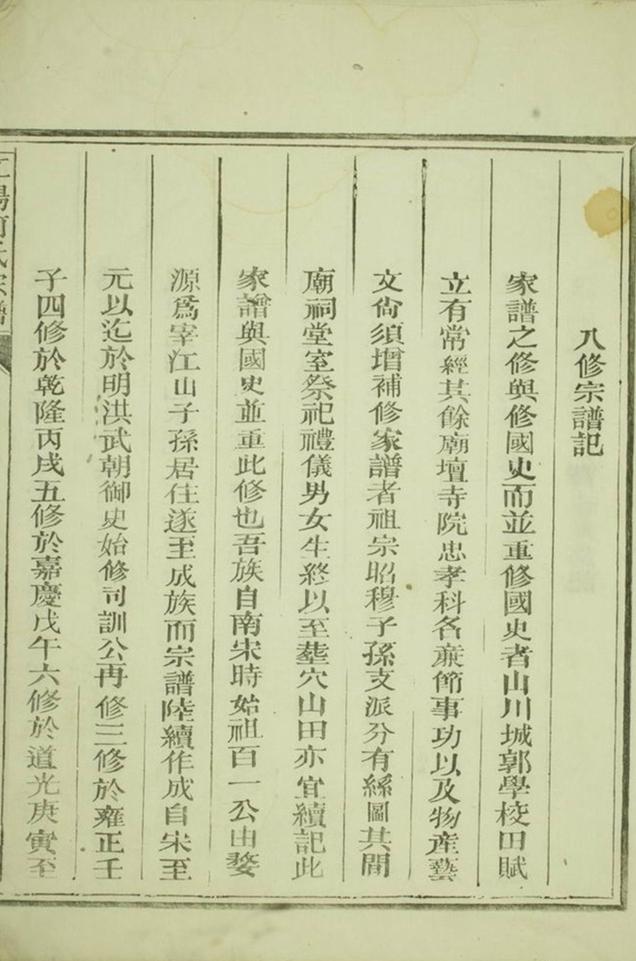 八修宗譜記
家譜之修與修國史而並重修國史者山川城郭學校田賦
立有常經其餘廟壇寺院忠孝科名亷節事功以及物産藝
文尙須增補修家譜者祖宗昭穆子孫支派分有絲圖其間
廟祠堂室祭祀禮儀男女生終以至塟穴山田亦宜續記此
家譜與國史並重此修也吾族自南宋時始祖百一公由婺
源爲宰江山子孫居住遂至成族而宗譜陸續作成自宋至
元以迄於明洪武朝御史始修司訓公再修三修於雍正壬
子四修於乾隆丙戌五修於嘉慶戊午六修於道光庚寅至